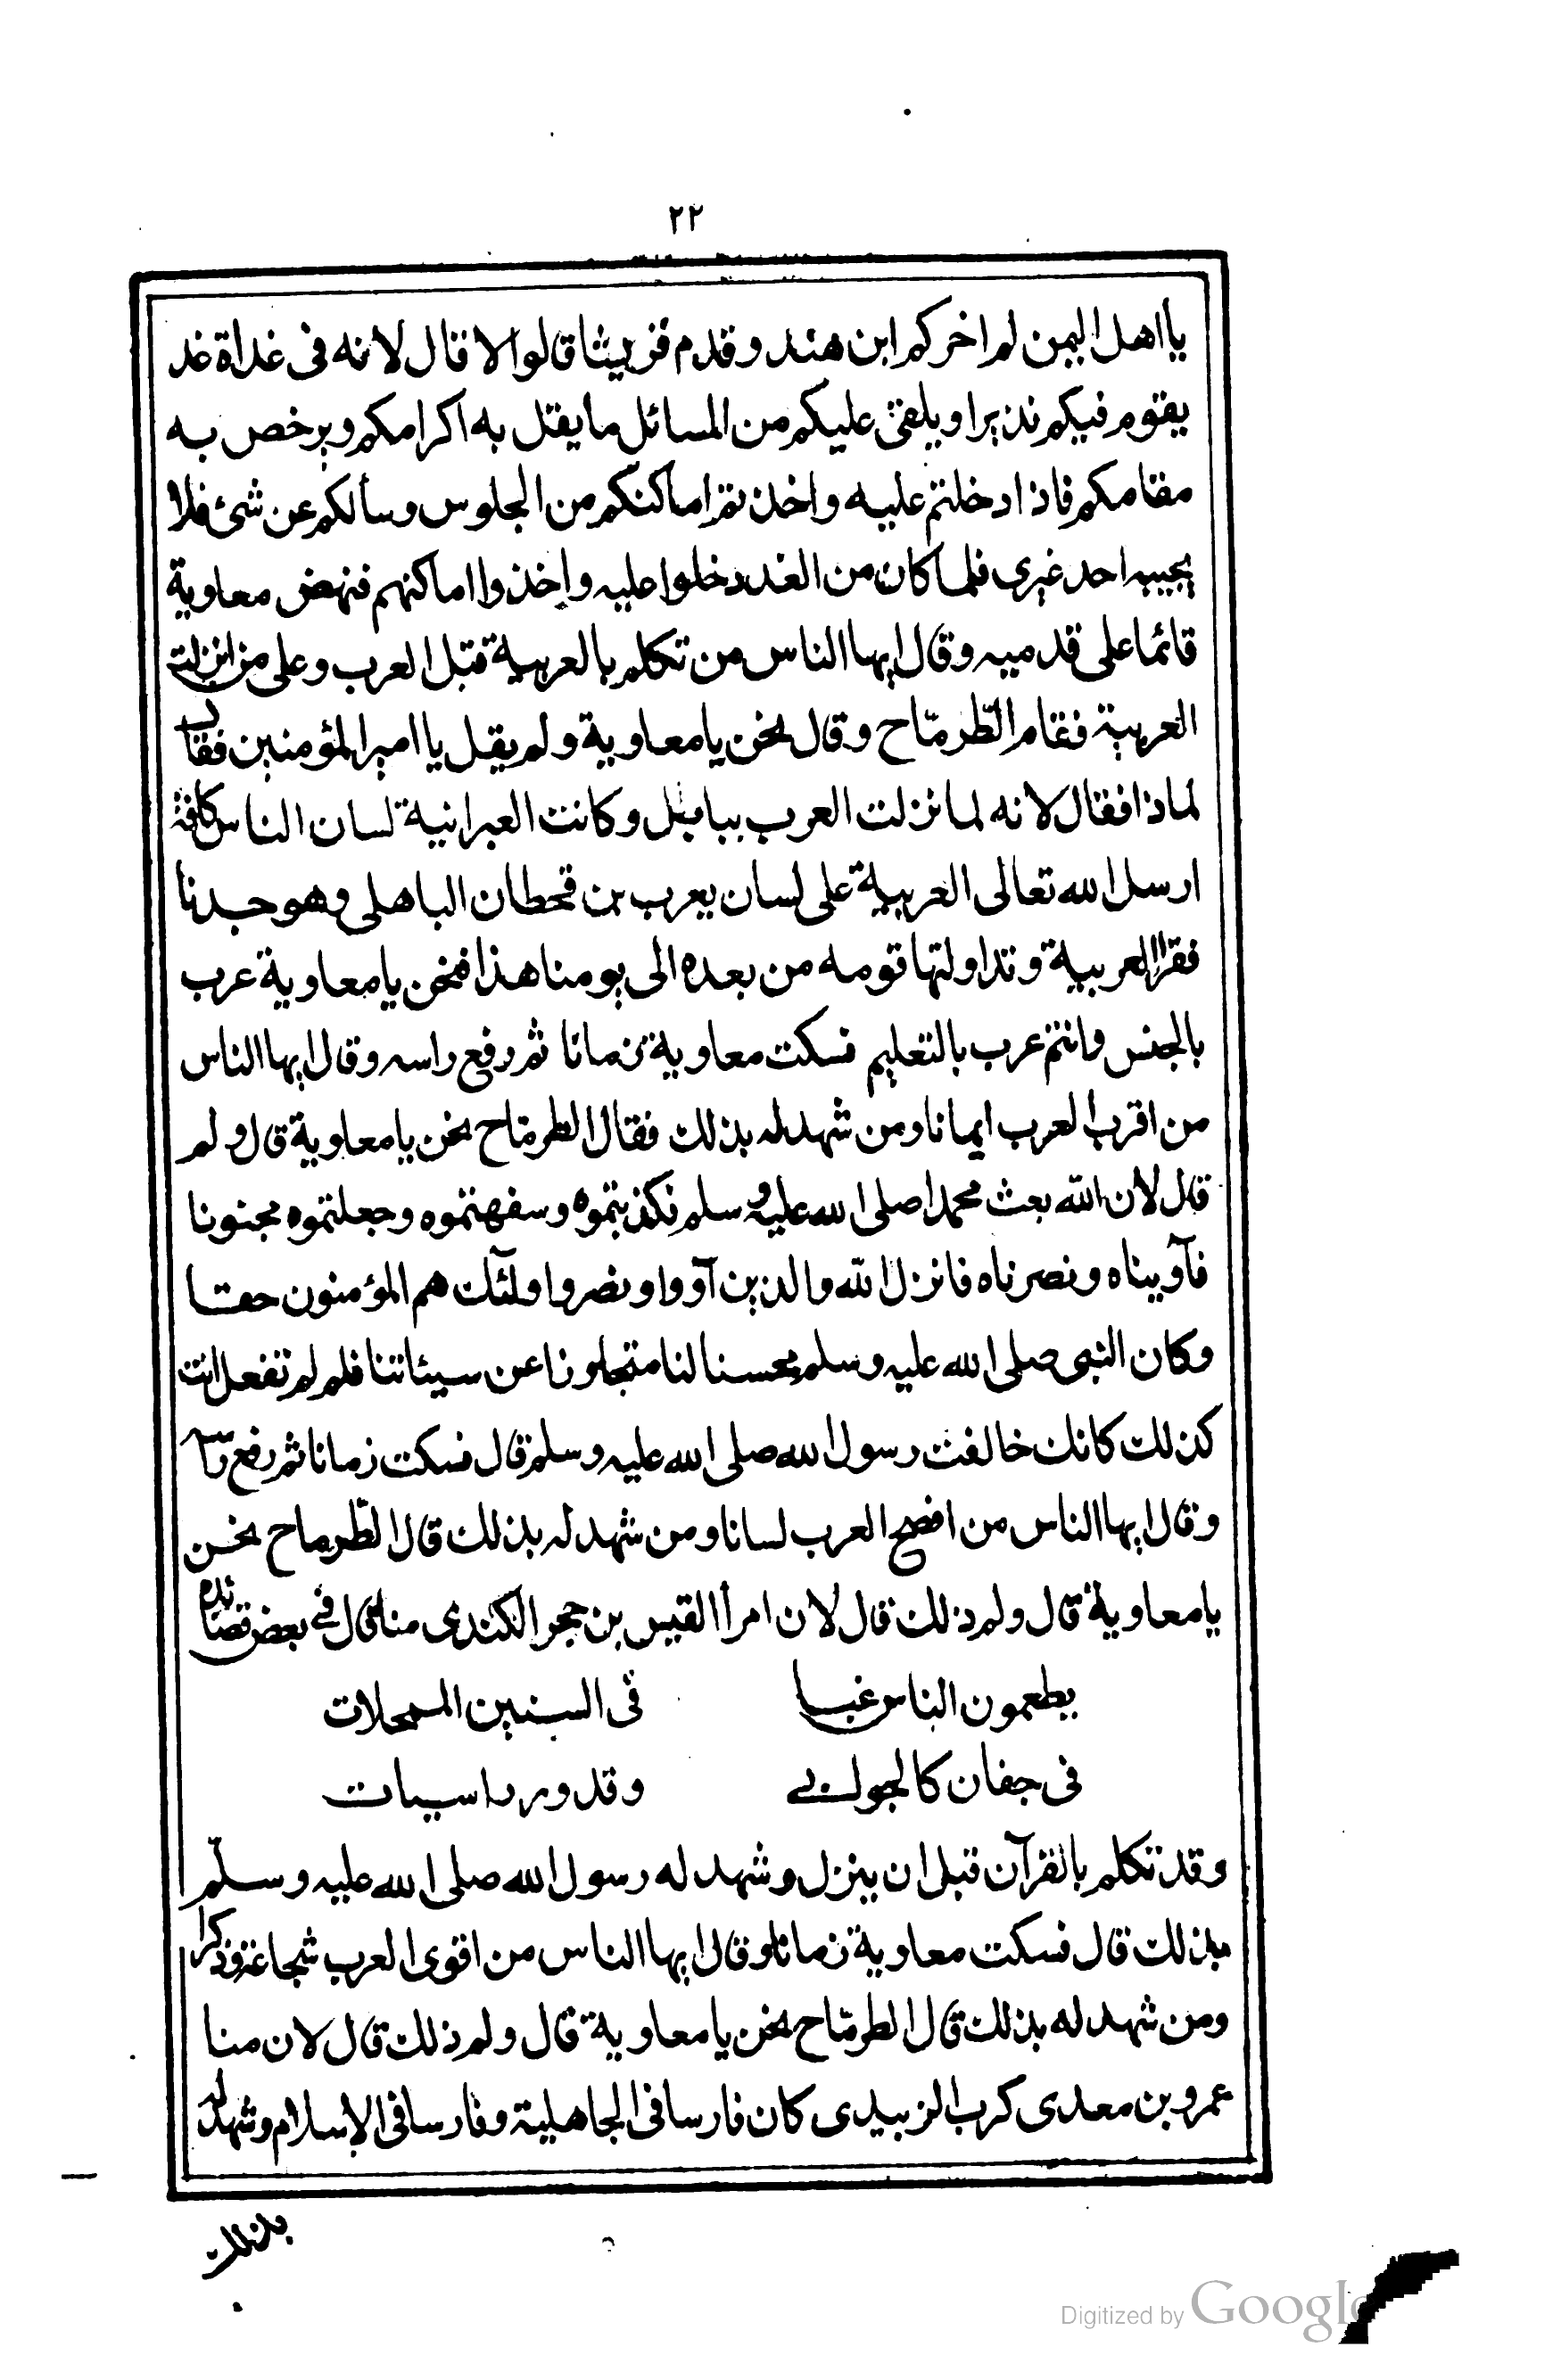 ٢٢
يا اهل اليمن لم اخركم ابن هند وقدم قريشا قالوا لا قال لانه فى غداة غد
يقوم فيكم نذيرا ويلقى عليكم من المسائل ما يقتل به اكرامكم ويرخص به
مقامكم فاذا دخلتم عليه واخذتم اماكنكم من الجلوس وسألكم عن شئ فلا
يجيبه احد غيرى فلما كان من الغد دخلوا عليه واخذوا اماكنهم فنهض معاوية
قائما على قدميه وقال ايها الناس من تكلم بالعربية قبل العرب وعلى من انزلت
العربية فقام الطّرمّاح وقال نحن يا معاوية ولم يقل يا امير المؤمنين فقال
لماذا فقال لانه لما نزلت العرب ببابل وكانت العبرانية لسان الناس كافة
ارسل الله تعالى العربية على لسان يعرب بن قحطان الباهلى وهو جدنا
فقرا العربية وتداولتها قومه من بعده الى يومنا هذا فنحن يا معاوية عرب
بالجنس وانتم عرب بالتعليم فسكت معاوية زمانا ثم رفع راسه وقال ايها الناس
من اقرب العرب ايمانا ومن شهد له بذلك فقال الطرمّاح نحن يا معاوية قال ولم
قال لان الله بعث محمدا صلى الله عليه وسلم فكذبتموه وسفهتموه وجعلتموه مجنونا
فآويناه ونصرناه فانزل الله والذين آووا ونصروا اولئك هم المؤمنون حقا
وكان النبى صلى الله عليه وسلم محسنا لنا متجاوزا عن سيئاتنا فلم لم تفعل انت
كذلك كانك خالفت رسول الله صلى الله عليه وسلم قال فسكت زمانا ثم رفع راسه
وقال ايها الناس من افصح العرب لسانا ومن شهد له بذلك قال الطّرماح نحن
يا معاوية قال ولم ذلك قال لان امرأ القيس بن حجر الكندى منا قال فى بعض قصائده
يطعمون الناس غبا فى السنين الممحلات
فى جفان كالجوابى وقدور راسيات
وقد تكلم بالقرآن قبل ان ينزل وشهد له رسول الله صلى الله عليه وسلّم
بذلك قال فسكت معاوية زمانا وقال ايها الناس من اقوى العرب شجاعة وذكرا
ومن شهد له بذلك قال الطرمّاح نحن يا معاوية قال ولم ذلك قال لان منا
عمرو بن معدى كرب الزبيدى كان فارسا فى الجاهلية وفارسا فى الاسلام وشهد له
بذلك
Digitized by Google